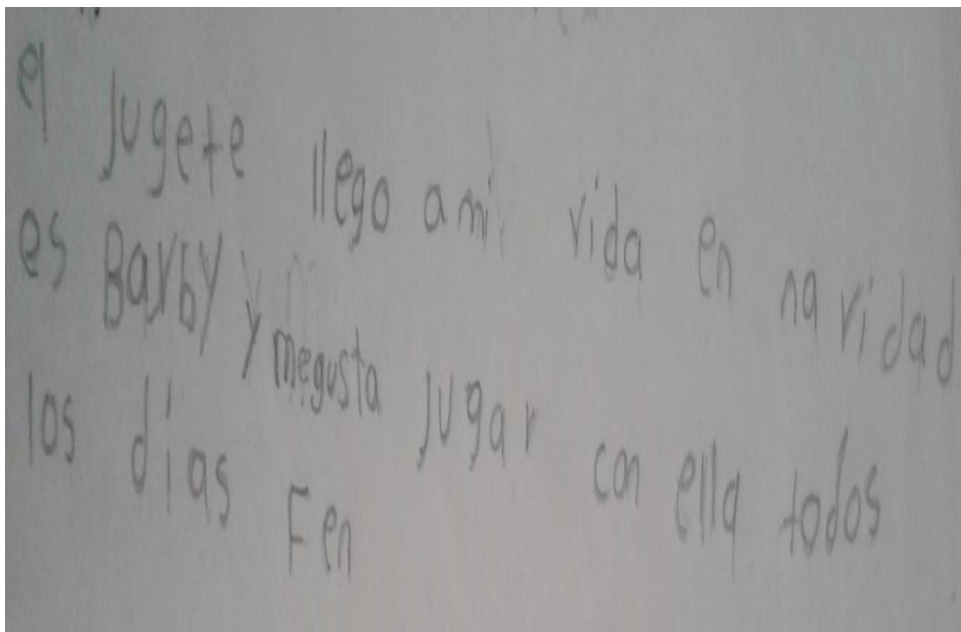 el jugete llego ami vida en navidad
es Barby y megusta jugar con ella todos
los dias Fen